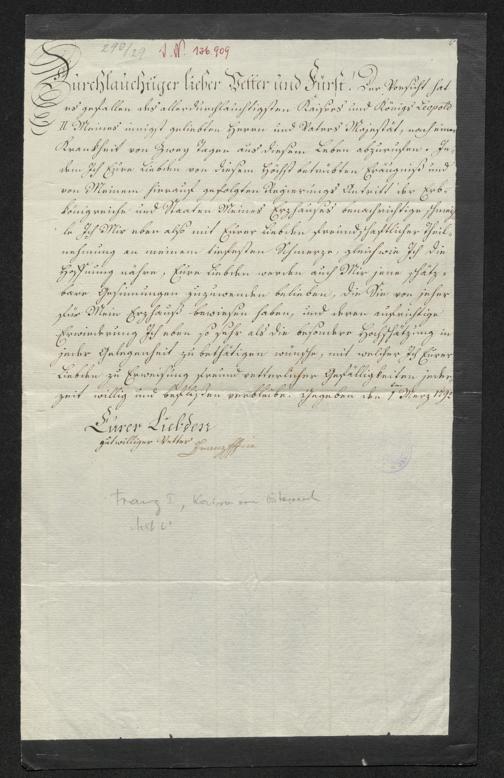 290/29 I. N. 136.909
Durchlauchtiger lieber Vetter und Fürst! Der Vorsicht hat
es gefallen des allerdurchlauchtigsten Kaisers und Königs Leopold
II Meines innigst geliebten Herren und Vaters Majestät, nach einer
Krankheit von zwey Tagen aus diesem Leben abzurufen. In-
dem Ich Eure Liebden von diesem höchst betrübten Ereigniß und
von Meinem hierauf gefolgten Regierungs Antritt der Erb-
königreiche und Staaten Meines Erzhauses benachrichtige, schmeich-
le Ich Mir eben also mit Eurer Liebden freundschaftlicher Theil-
nehmung an meinem tiefesten Schmerze, gleichwie Ich die
Hoffnung nähre, Eure Liebden werden auch Mir jene schätz-
bare Gesinnungen zuzuwenden belieben, die Sie von jeher
für Mein Erzhauß bewiesen haben, und deren aufrichtige
Erwiederung Ich eben so sehr als die besondere Hochschätzung in
jeder Gelegenheit zu bethätigen wünsche, mit welcher Ich Eurer
Liebden zu Erweisung freund vetterlicher Gefälligkeiten jeder-
zeit willig und beflissen verbleibe. Gegeben den 1ten Merz 1792
Eurer Liebden
gutwilliger Vetter Franz
Franz I, Kaiser von Österreich